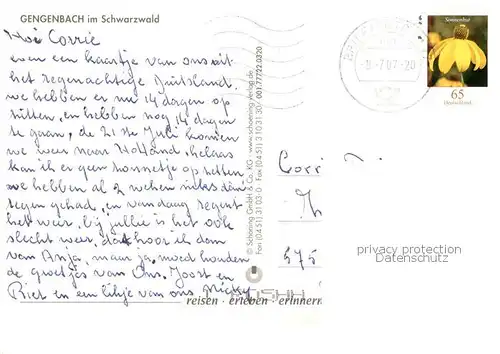 GENGENBACH im Schwarzwald
Hoi Corrie
even een kaartje van ons uit
het regenachtige Duitsland.
we hebben er nu 14 dagen op
zitten, en hebben nog 14 dagen
te gaan, de 21ste Juli komen
we weer naar Holland, helaas
kan ik er geen zonnetje op zetten
we hebben al 2 weken niks dan
regen gehad, en vandaag regent
het weer, bij jullie is het ook
slecht weer, dat hoor ik dan
van Anja, maar ja, moed houden
de groetjes van Ons. Joost en
Riet en een likje van ons Nicky
reisen · erleben · erinnern
© Schöning GmbH & Co. KG · www.schoening-verlag.de
Fon (04 51) 31 03-0 · Fax (04 51) 3 10 31 30 · 001.77722.0320
Sonnenhut
65
Deutschland
Corri
575
privacy protection
Datenschutz